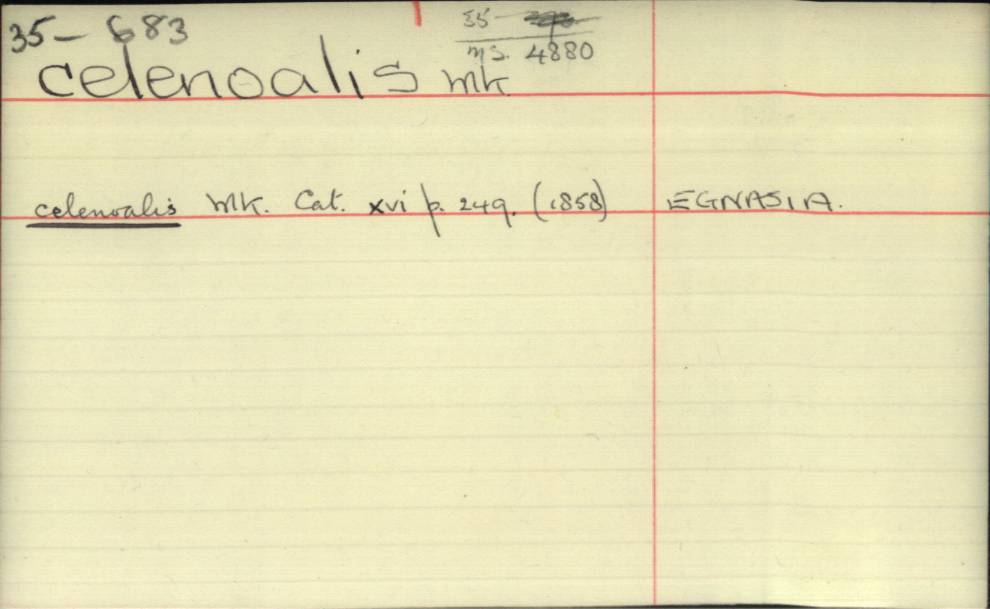 35 — 683
35 —
MS. 4880
celenoalis Wlk.
celenoalis Wlk. Cat. xvi p. 249. (1858) EGNASIA.